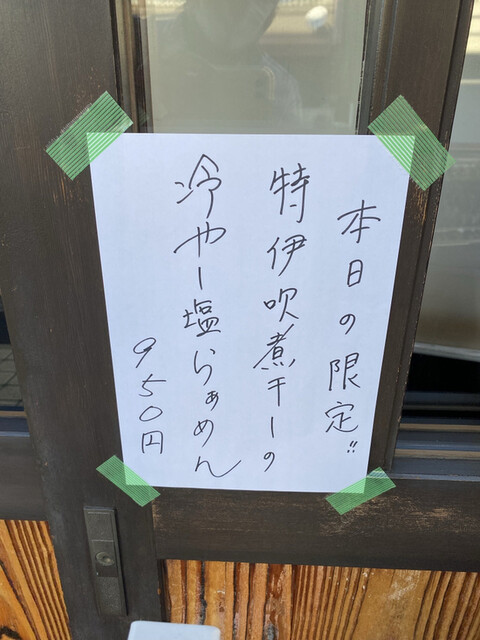 本日の限定!!
特伊吹煮干しの
冷やし塩らぁめん
950円